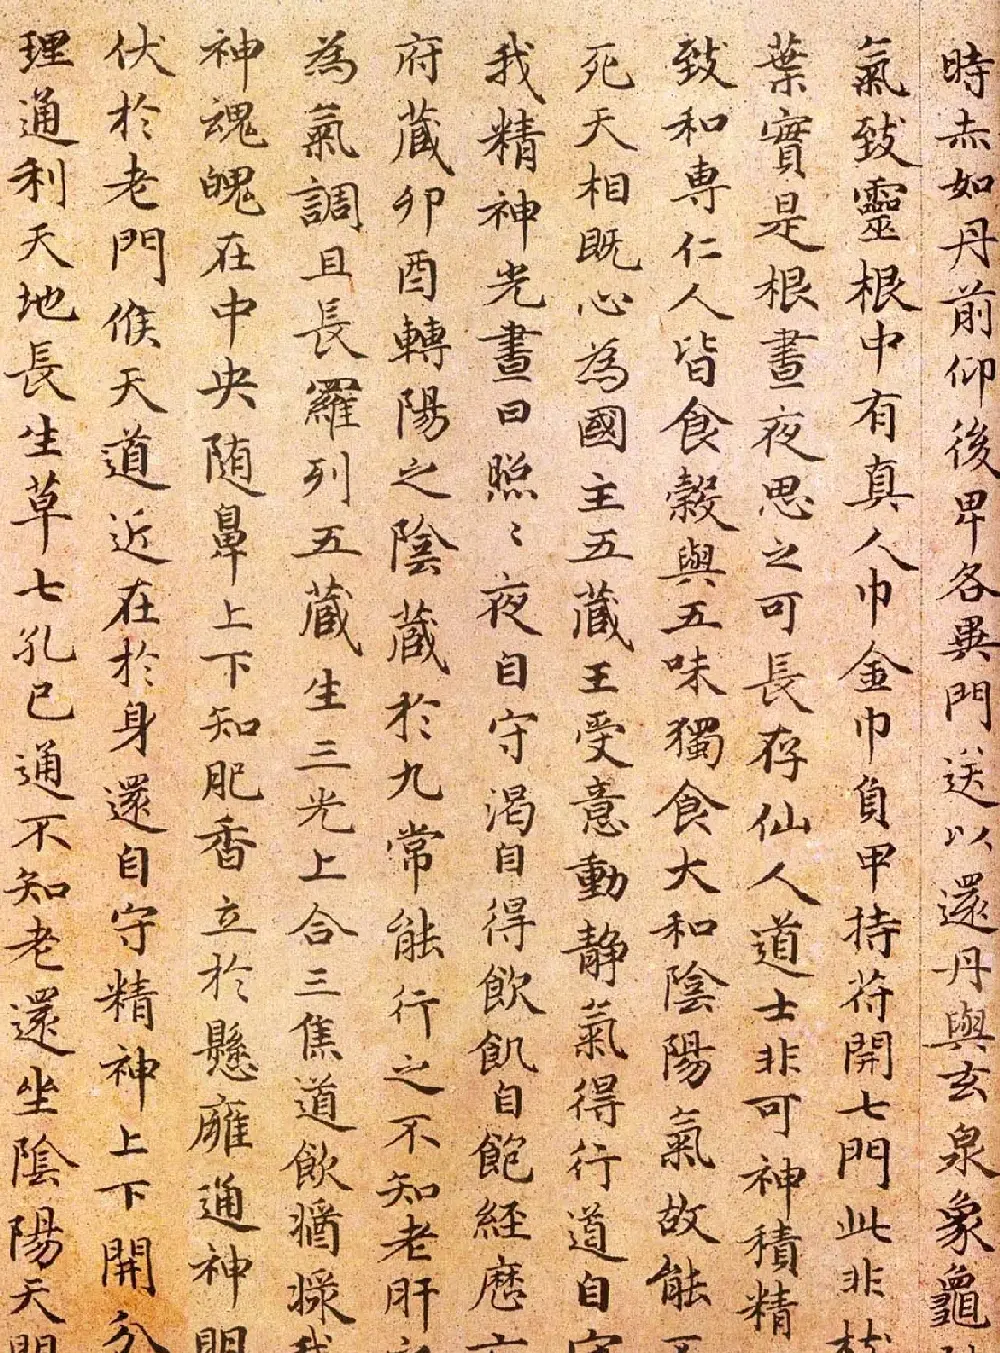 時赤如丹前仰後卑各異門送以還丹與玄泉象龜
氣致靈根中有真人巾金巾負甲持符開七門此非枝
葉實是根晝夜思之可長存仙人道士非可神積精
致和専仁人皆食穀與五味獨食大和陰陽氣故能不
死天相既心為國主五藏王受意動靜氣得行道自守
我精神光晝日照〻夜自守渇自得飲飢自飽経歷六
府藏卯酉轉陽之陰藏於九常能行之不知老肝之
為氣調且長羅列五藏生三光上合三焦道飲漿我
神魂魄在中央随鼻上下知肥香立於懸雍通神明
伏於老門候天道近在於身還自守精神上下開分
理通利天地長生草七孔已通不知老還坐陰陽天門